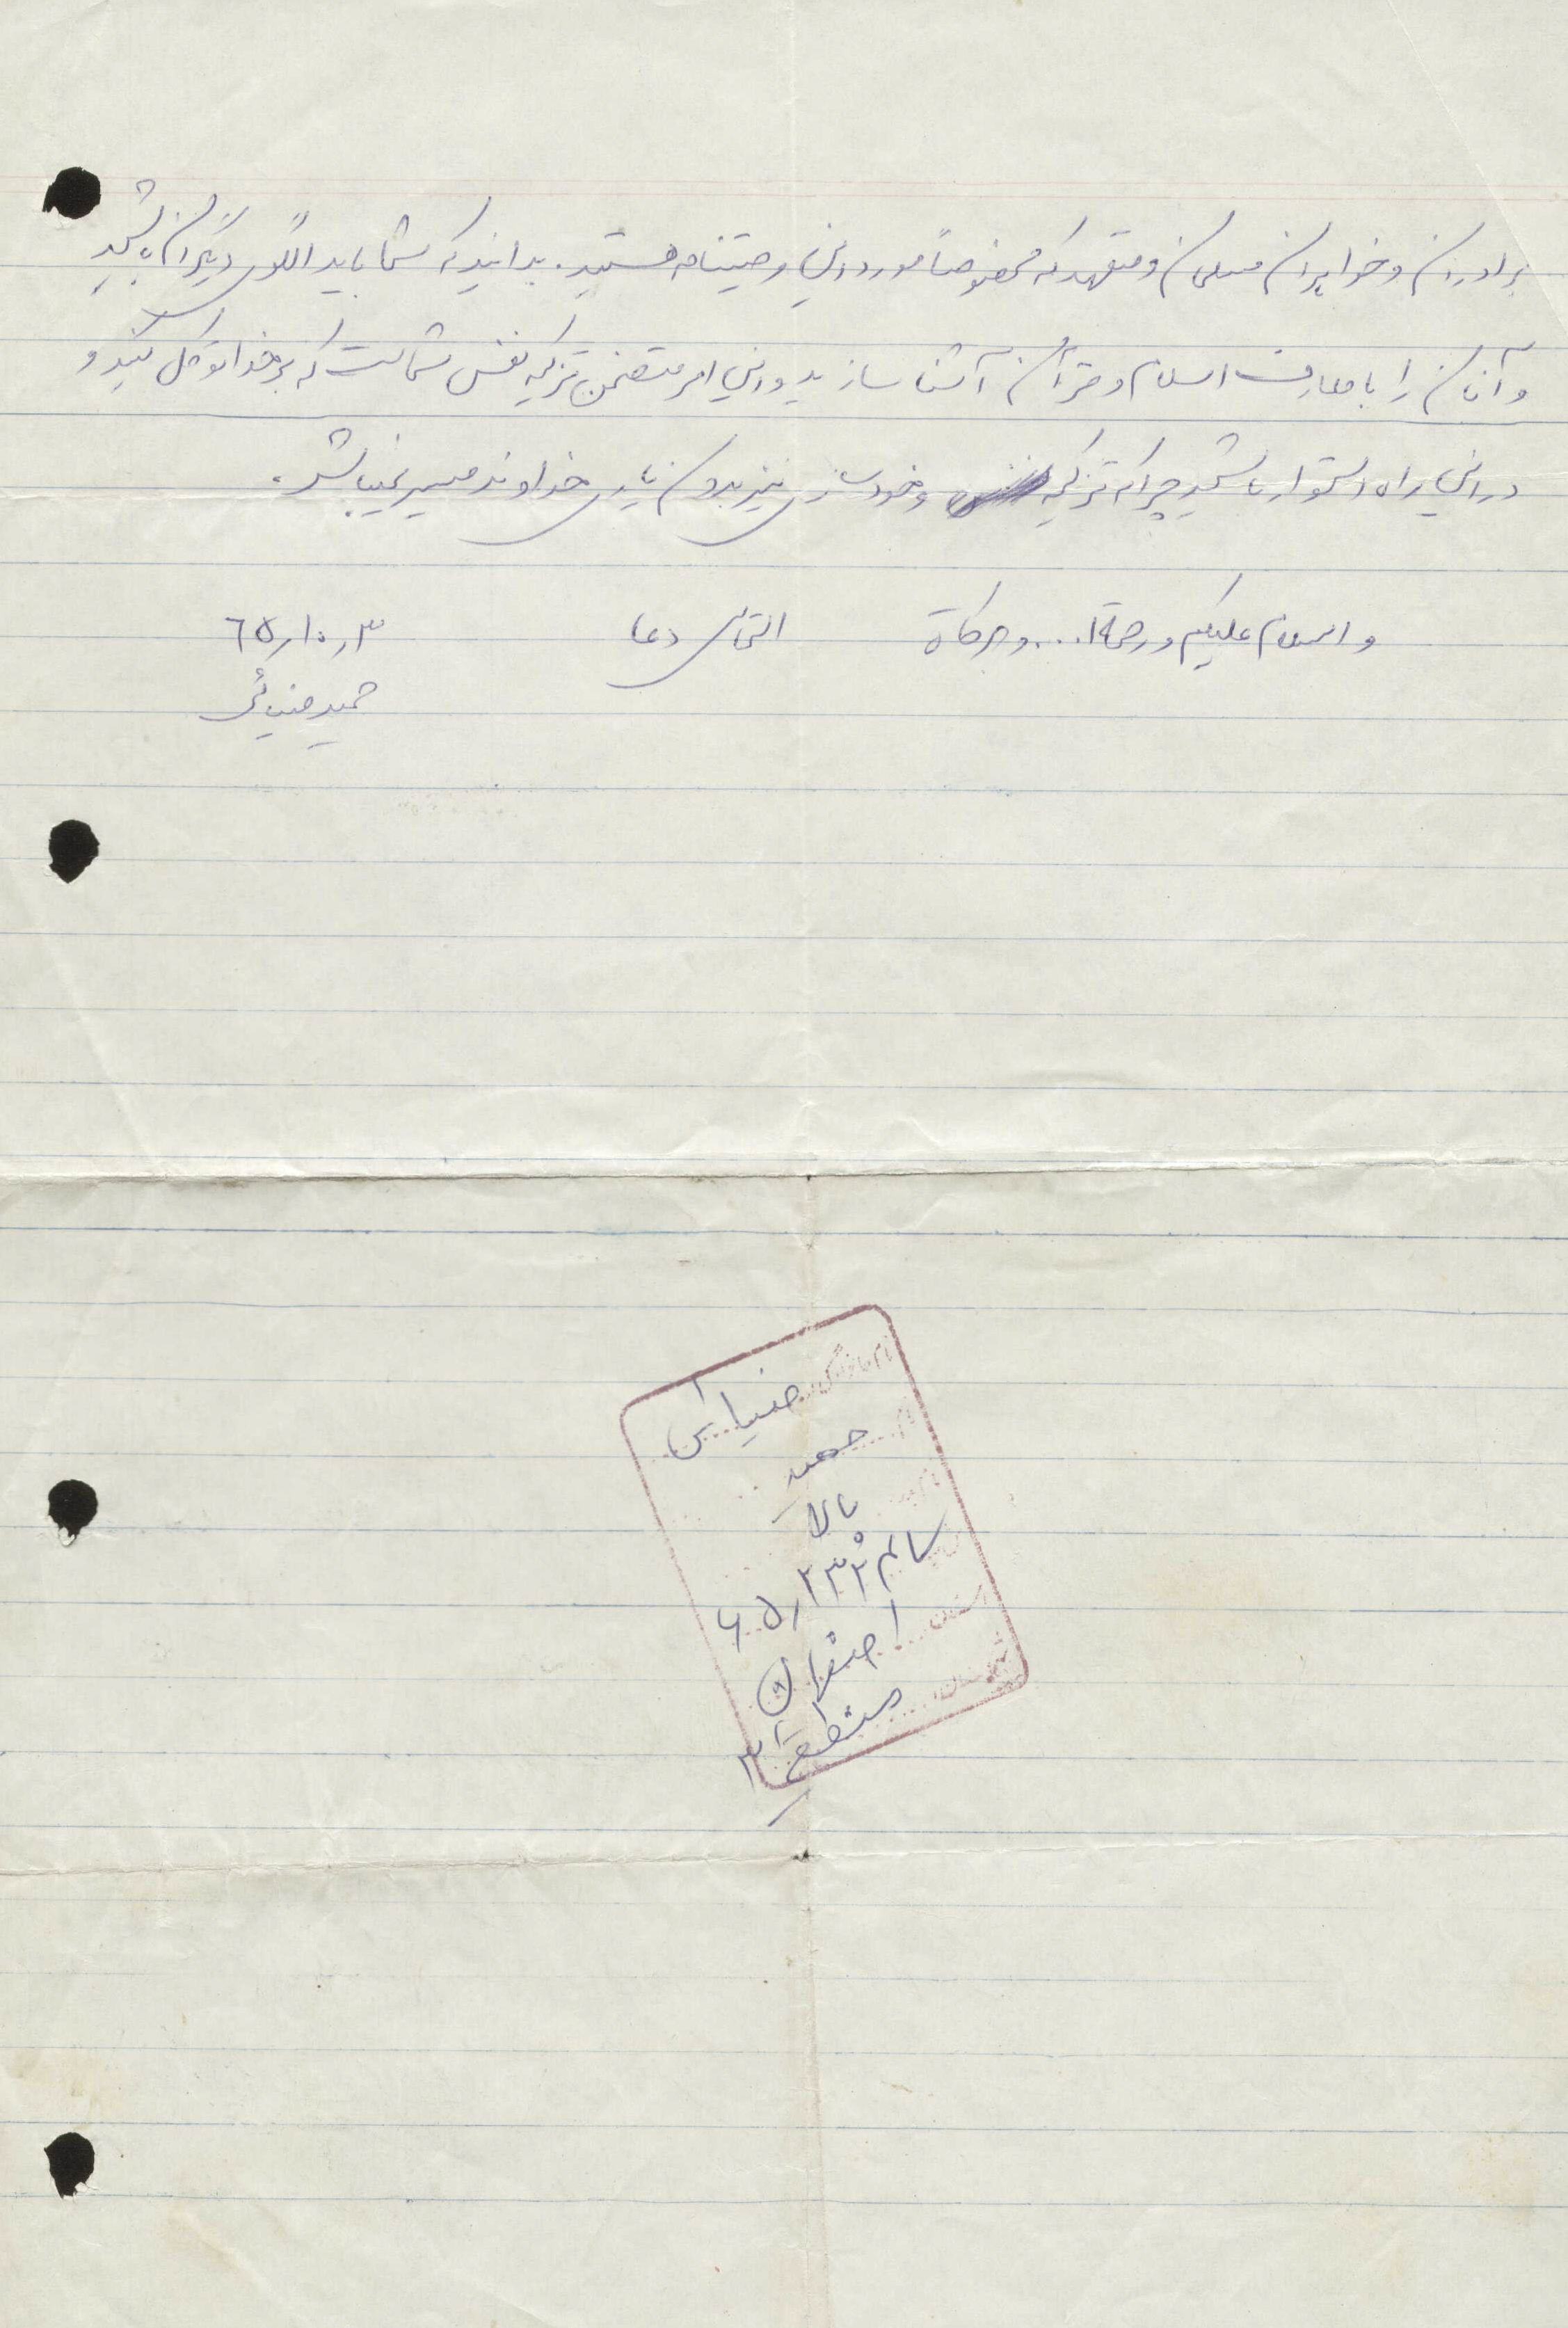 برادران و خواهران مسلمان و متعهد که مخصوصاً مورد این وصیتنامه هستید. بدانید که شما باید الگوی دیگران باشید
و آنان را با معارف اسلام و قرآن آشنا سازید و این امر متضمن تزکیه نفس شماست که بر خدا توکل کنید و
در این راه استوار باشید چرا که تزکیه و خودسازی نیز بدون یاری خداوند میسر نمیباشد.
والسلام علیکم و رحمة ا... و برکاة التماس دعا ٦٥ر١٠ر٣
حمید ضیائی
نام خانوادگی ضیائی
نام حمید
نام پدر
سالم ٢٣٢ر٦٥
استان اصفهان
شهرستان منطقه ٣